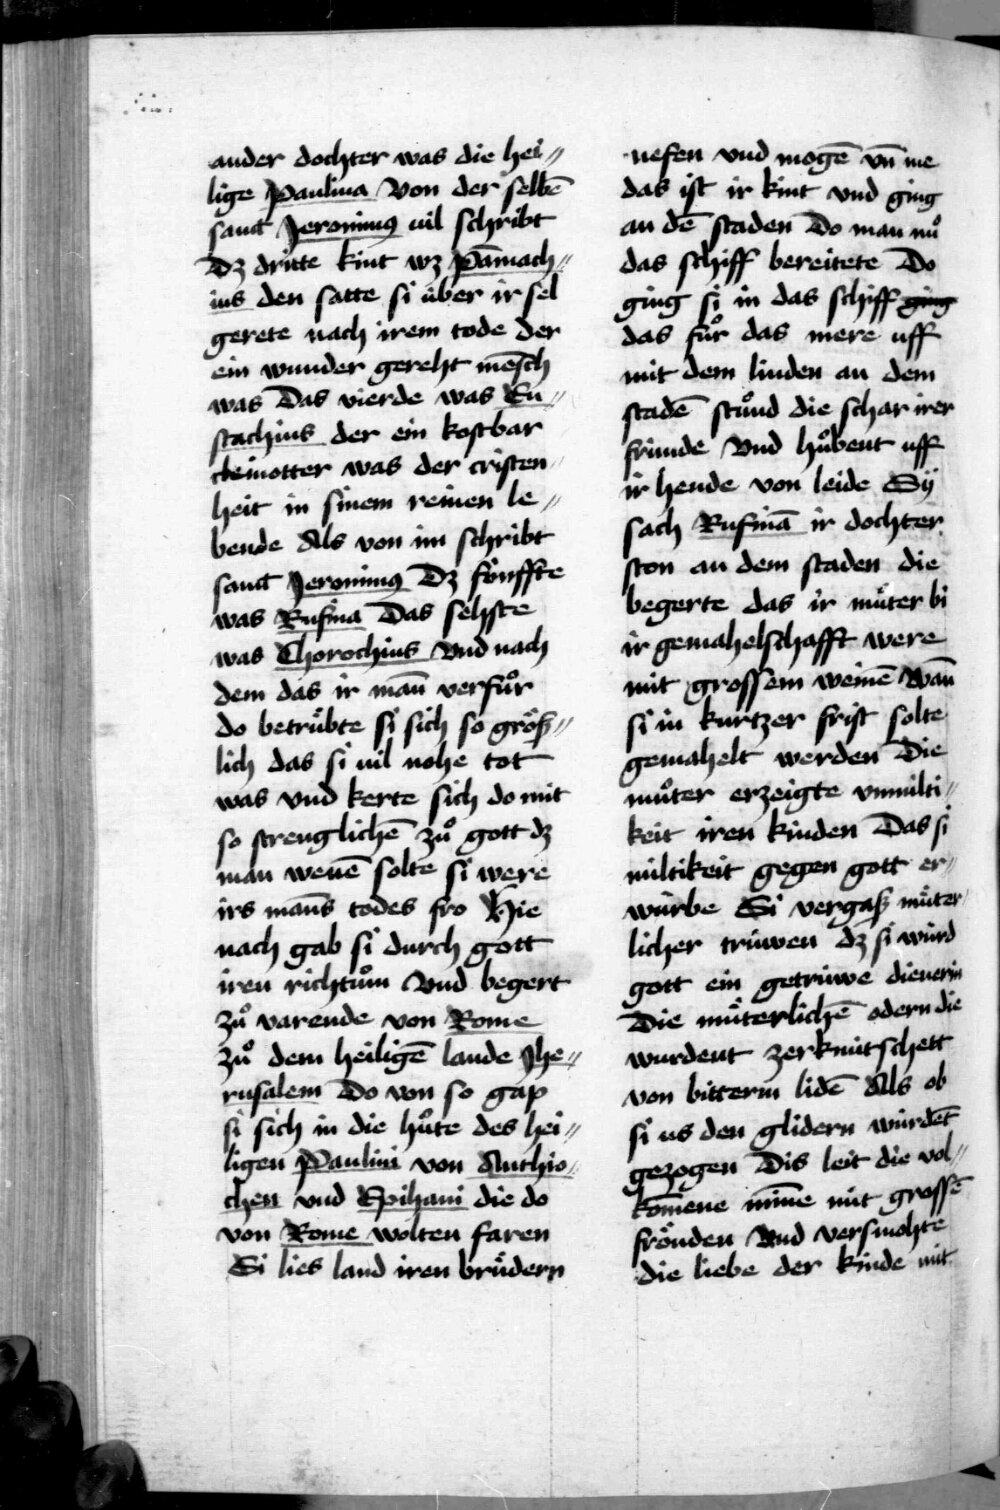 ander dochter was die hei〃
lige Paulina Von der selbē
sanct Jeronimꝰ uil schribt
Dz dritte kint wz Pāmach〃
ius den satte si über ir sel
gerete nach irem tode der
ein wunder gereht mēsch
was Das vierde was Eu〃
stachius der ein kostbar
cleinotter was der cristen〃
heit in sinem reinen le〃
bende Als von im schribt
sanct Jeronimꝰ Dz fönffte
was Rufina Das sehste
was Thorochius Vnd nach
dem das ir mān verfuͦr
do betruͤbte si sich so groͤß〃
lich das si uil nohe tot
was vnd kerte sich do mit
so strenglichē zuͦ gott dz
man wenē solte si were
irs māns todes fro Hie
nach gab si durch gott
iren richtuͦm Vnd begert
zuͦ varende von Rome
zuͦ dem heiligē lande Jhe〃
rusalem Do von so gap
si sich in die huͦte des hei〃
ligen Paulini von Anthio〃
chen vnd Epihani die do
von Rome wolten faren
Si lies land iren bruͤdern
nefen vnd mogē vn̄ me
das ist ir kint vnd ging
an dē staden Do man nuͦ
das schiff bereitete Do
ging si in das schiff ging
das fuͦr das mere uff
mit dem linden an dem
stadē stuͦnd die schar irer
friunde Vnd huͦbent uff
ir hende von leide Sÿ
sach Rufinā ir dochter
ston an dem staden die
begerte das ir muͦter bi
ir gemahelschafft were
mit grossem weinē Wān
si in kurtzer frist solte
gemahelt werden Die
muͦter erzeigte vnmilti〃
keit iren kinden Das si
miltikeit gegen gott er〃
würbe Si vergaß muͤter〃
licher trüwen dz si würd
gott ein getrüwe dienerin
Die muͤterlichē odern die
wurdent zerknütschett
von bitterm lidē Als ob
si us den glidern würdēt
gezogen Dis leit die vol〃
komene minne mit grossē
froͤuden Vnd versmohte
die liebe der kinde mit